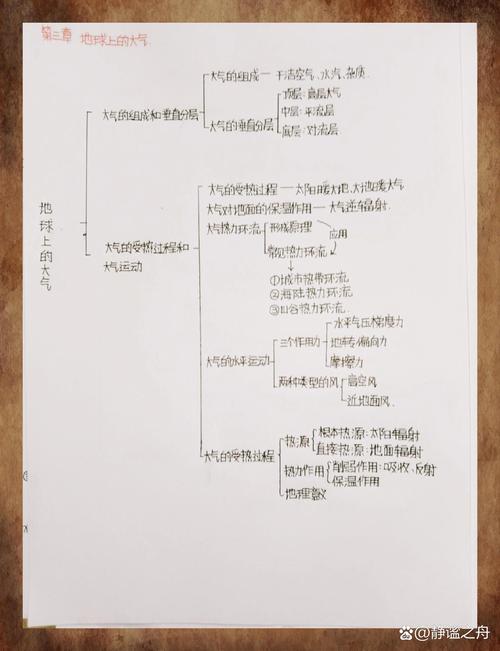 第三章 地球上的大气.
地球上的大气
大气的组成和垂直分层
大气的组成 — 干洁空气、水汽、杂质.
大气的垂直分层
顶层:高层大气
中层:平流层
底层:对流层
大气的受热过程和大气运动
大气的受热过程 — 太阳暖大地、大地暖大气
大气对地面的保温作用 → 大气逆辐射.
大气热力环流
形成原理
应用
常见热力环流
①城市热岛环流
②海陆热力环流
③山谷热力环流.
大气的水平运动
三个作用力
水平气压梯度力
地转偏向力
摩擦力
两种类型的风
高空风
近地面风.
大气的受热过程
热源
根本热源:太阳辐射
直接热源:地面辐射
热力作用
削弱作用:吸收、反射
保温作用
地理意义
@静谧之舟